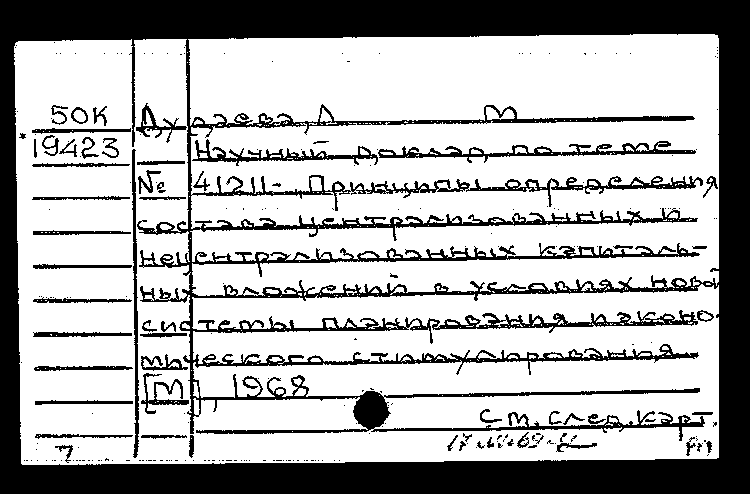 50К Дудаева, Л М
19423 Научный доклад по теме
№ 41211- „Принципы определения
состава централизованных и
нецентрализованных капиталь-
ных вложений в условиях новой
системы планирования и эконо-
мического стимулирования
[М], 1968
См. след. карт.